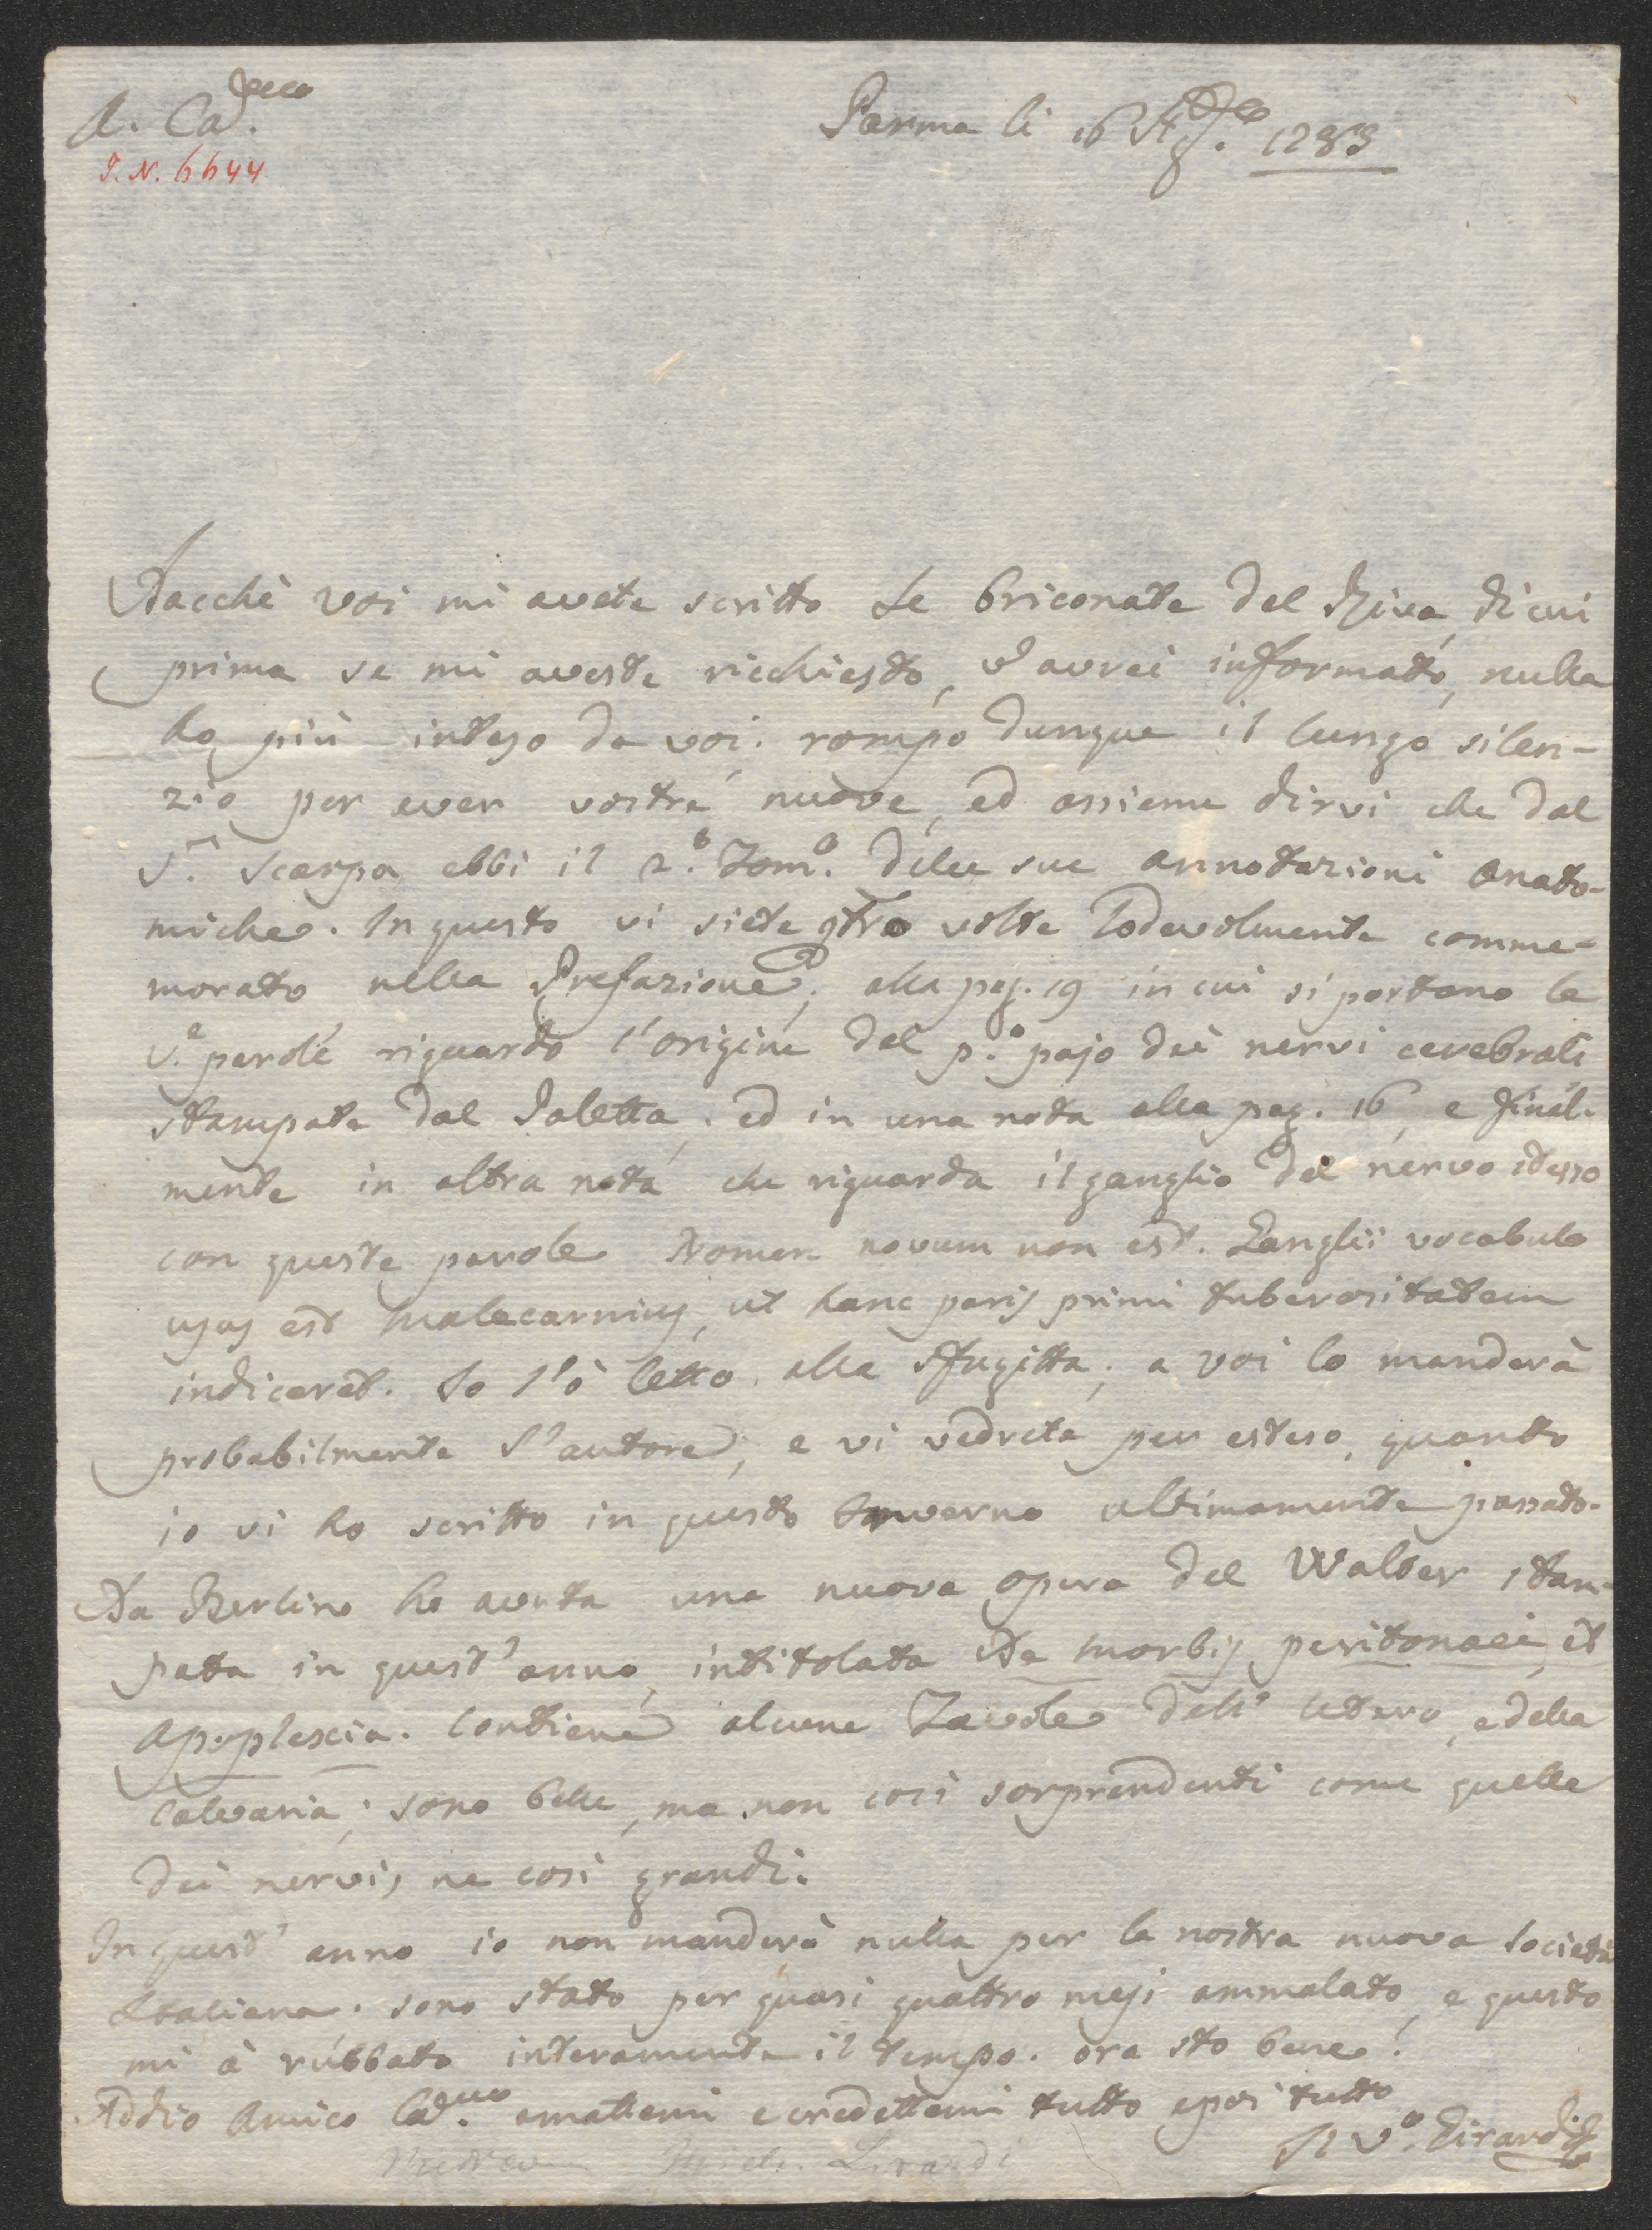 A. Ca.mo
J. N. 6644
Parma li 16 Ag.to 1785
Dacchè voi mi avete scritto le briconate del Riva, di cui
prima se mi aveste ricchiesto, v'avrei informato, nulla
ho più inteso da voi. rompo dunque il lungo silen-
zio per aver vostre nuove, ed assieme dirvi che dal
S.r Scarpa ebbi il 2.o Tom.o delle sue annotazioni anato-
miche. In questo vi siete volte lodevolmente comme-
morato nella Prefazione; alla pag. 19 in cui si portano le
v.e parole riguardo l'origine del p.o pajo dei nervi cerebrali
stampate dal Paletta; ed in una nota alla pag. 16, e final-
mente in altra nota che riguarda il ganglio del nervo stesso
con queste parole Nomen novum non est. Ganglii vocabulo
usus est Malacarnius, ut hanc paris primi tuberositatem
indicaret. Io l'ò letto alla sfugitta; a voi lo manderà
probabilmente l'autore, e vi vedrete per esteso, quanto
io vi ho scritto in questo inverno ultimamente passato.
Da Berlino ho avuta una nuova opera del Walter stam-
pata in quest'anno, intitolata De morbis peritonaei, et
apoplexia. Contiene alcune Tavole dell'utero, e della
calvaria; sono belle, ma non così sorprendenti come quelle
dei nervi, ne così grandi.
In quest'anno io non manderò nulla per la nostra nuova società
Italiana. sono stato per quasi quattro mesi ammalato, e questo
mi à rubbato interamente il tempo. ora sto bene.
Addio Amico Ca.mo amattemi e credettemi tutto e poi tutto
Il v.o Girardi
Girardi